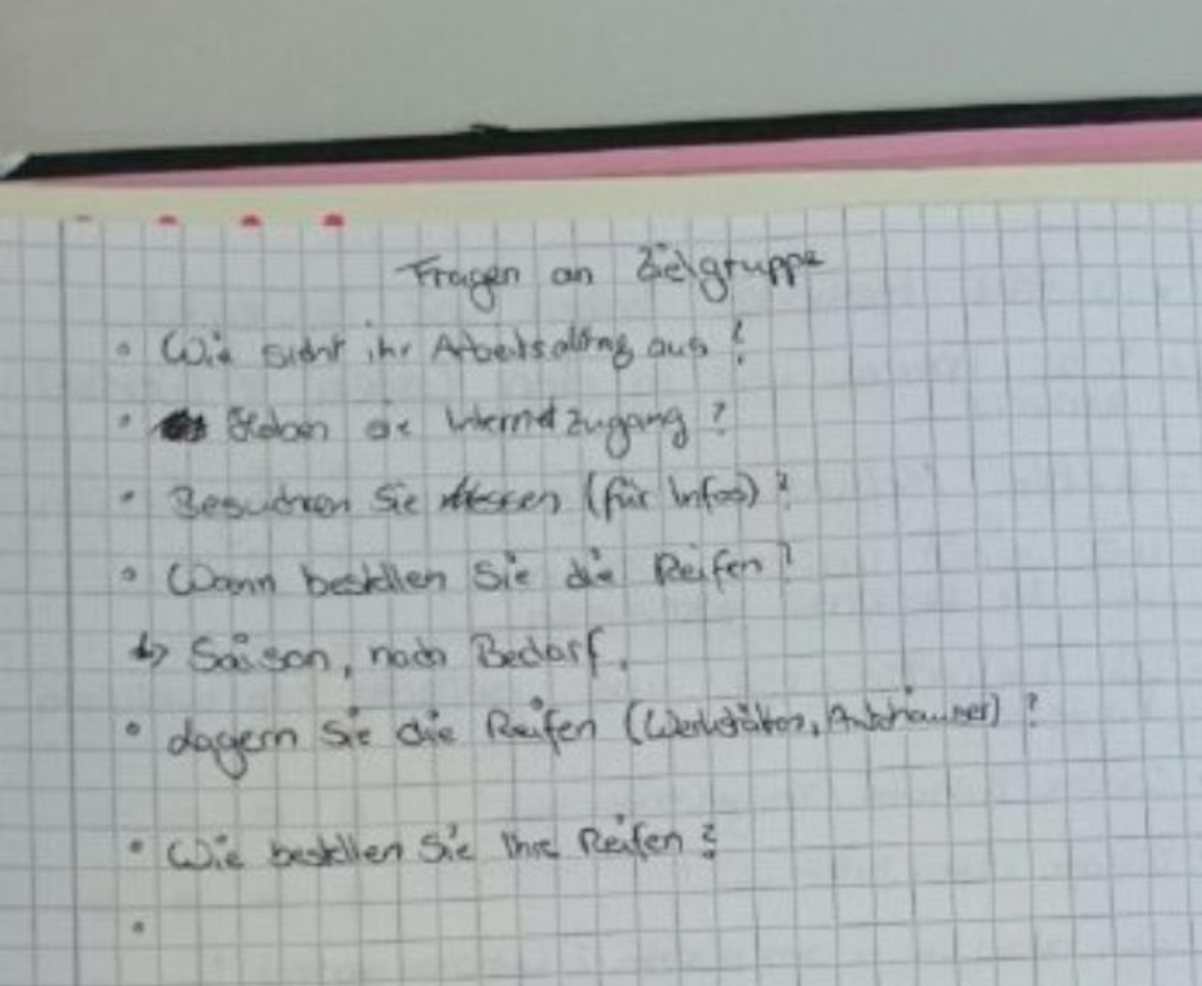 Fragen an Zielgruppe
• Wie sieht ihr Arbeitsalltag aus?
• Haben sie Internetzugang?
• Besuchen Sie Messen (für Infos)?
• Wann bestellen Sie die Reifen?
↳ Saison, nach Bedarf.
• Lagern Sie die Reifen (Werkstätten, Autohäuser)?
• Wie bestellen Sie Ihre Reifen?
•